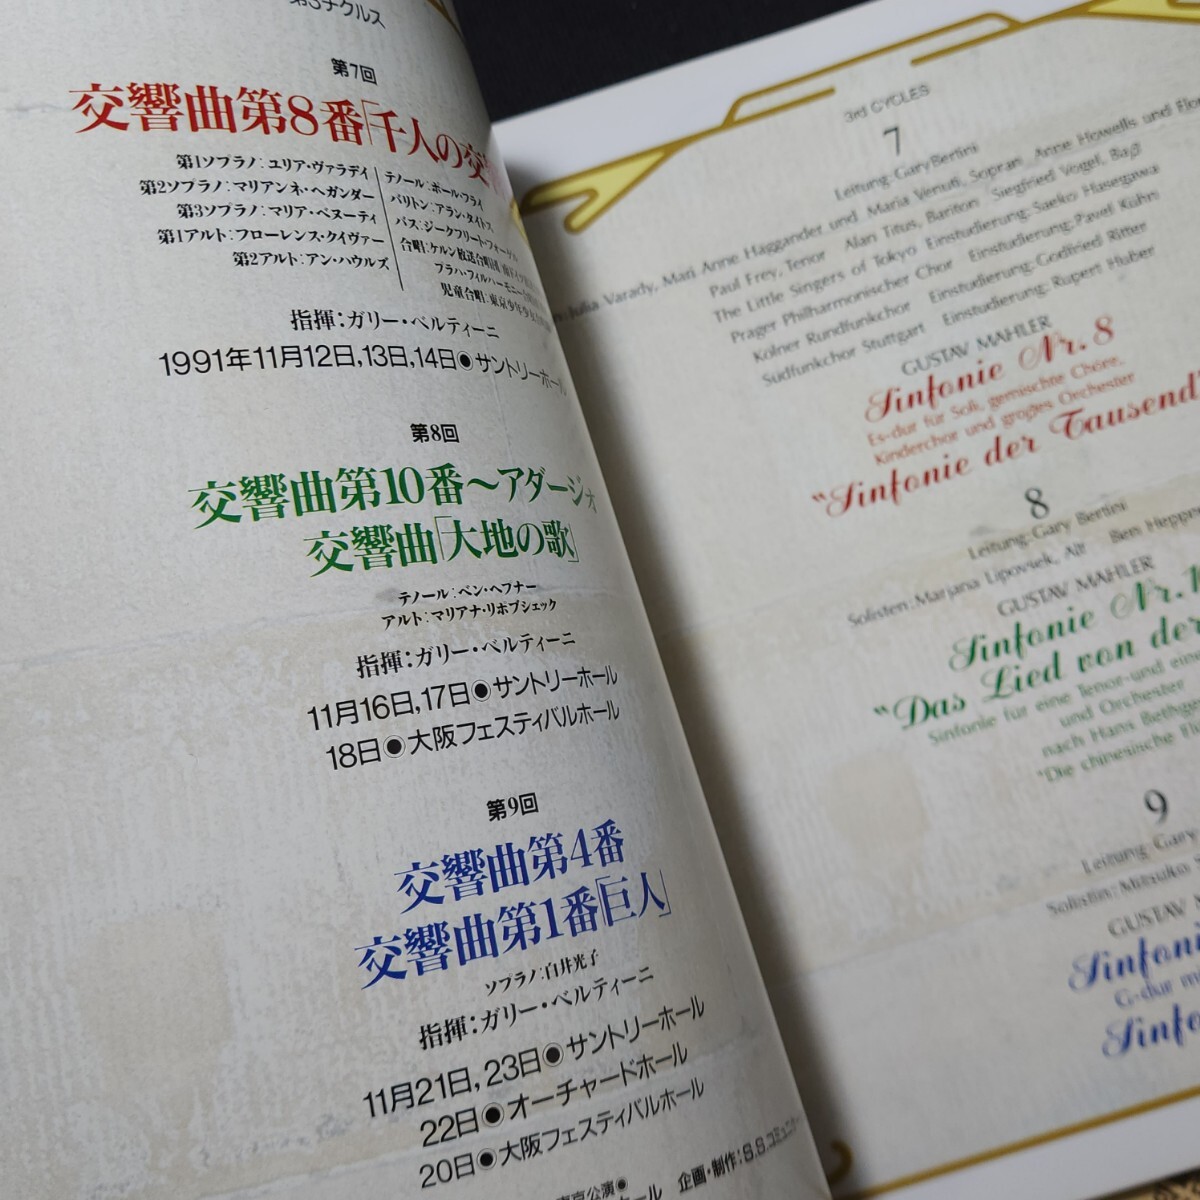 第3チクルス
第7回
交響曲第8番「千人の交
第1ソプラノ:ユリア・ヴァラディ
第2ソプラノ:マリアンネ・ヘガンダー
第3ソプラノ:マリア・ベヌーティ
第1アルト:フローレンス・クイヴァー
第2アルト:アン・ハウルズ
テノール:ポール・フライ
バリトン:アラン・タイトス
バス:ジークフリート・フォーゲル
合唱:ケルン放送合唱団
プラハ・フィルハーモニー
児童合唱:東京少年少女
指揮:ガリー・ベルティーニ
1991年11月12日,13日,14日◉サントリーホール
第8回
交響曲第10番〜アダージォ
交響曲「大地の歌」
テノール:ベン・ヘフナー
アルト:マリアナ・リポブシェック
指揮:ガリー・ベルティーニ
11月16日,17日◉サントリーホール
18日◉大阪フェスティバルホール
第9回
交響曲第4番
交響曲第1番「巨人」
ソプラノ:白井光子
指揮:ガリー・ベルティーニ
11月21日,23日◉サントリーホール
22日◉オーチャードホール
20日◉大阪フェスティバルホール
東京公演◉
ホール 企画・制作:S.S.コミュニケ
3rd CYCLES
7
Leitung:Gary Bertini
Julia Varady, Mari Anne Häggander und Maria Venuti, Sopran Anne Howells und Flor
Paul Frey, Tenor Alan Titus, Bariton Siegfried Vogel, Baß
The Little Singers of Tokyo Einstudierung:Saeko Hasegawa
Prager Philharmonischer Chor Einstudierung:Pavel Kühn
Kölner Rundfunkchor Einstudierung:Godfried Ritter
Südfunkchor Stuttgart Einstudierung:Rupert Huber
GUSTAV MAHLER
Sinfonie Nr. 8
Es-dur für Soli, gemischte Chöre,
Kinderchor und großes Orchester
"Sinfonie der Tausend"
8
Leitung:Gary Bertini
Solisten:Marjana Lipovšek, Alt Ben Heppn
GUSTAV MAHLER
Sinfonie Nr. 1
"Das Lied von der
Sinfonie für eine Tenor-und eine
und Orchester
nach Hans Bethge
"Die chinesische Fl
9
Leitung:Gary
Solistin:Mitsuko
GUSTAV
Sinfoni
G-dur m
Sinfo